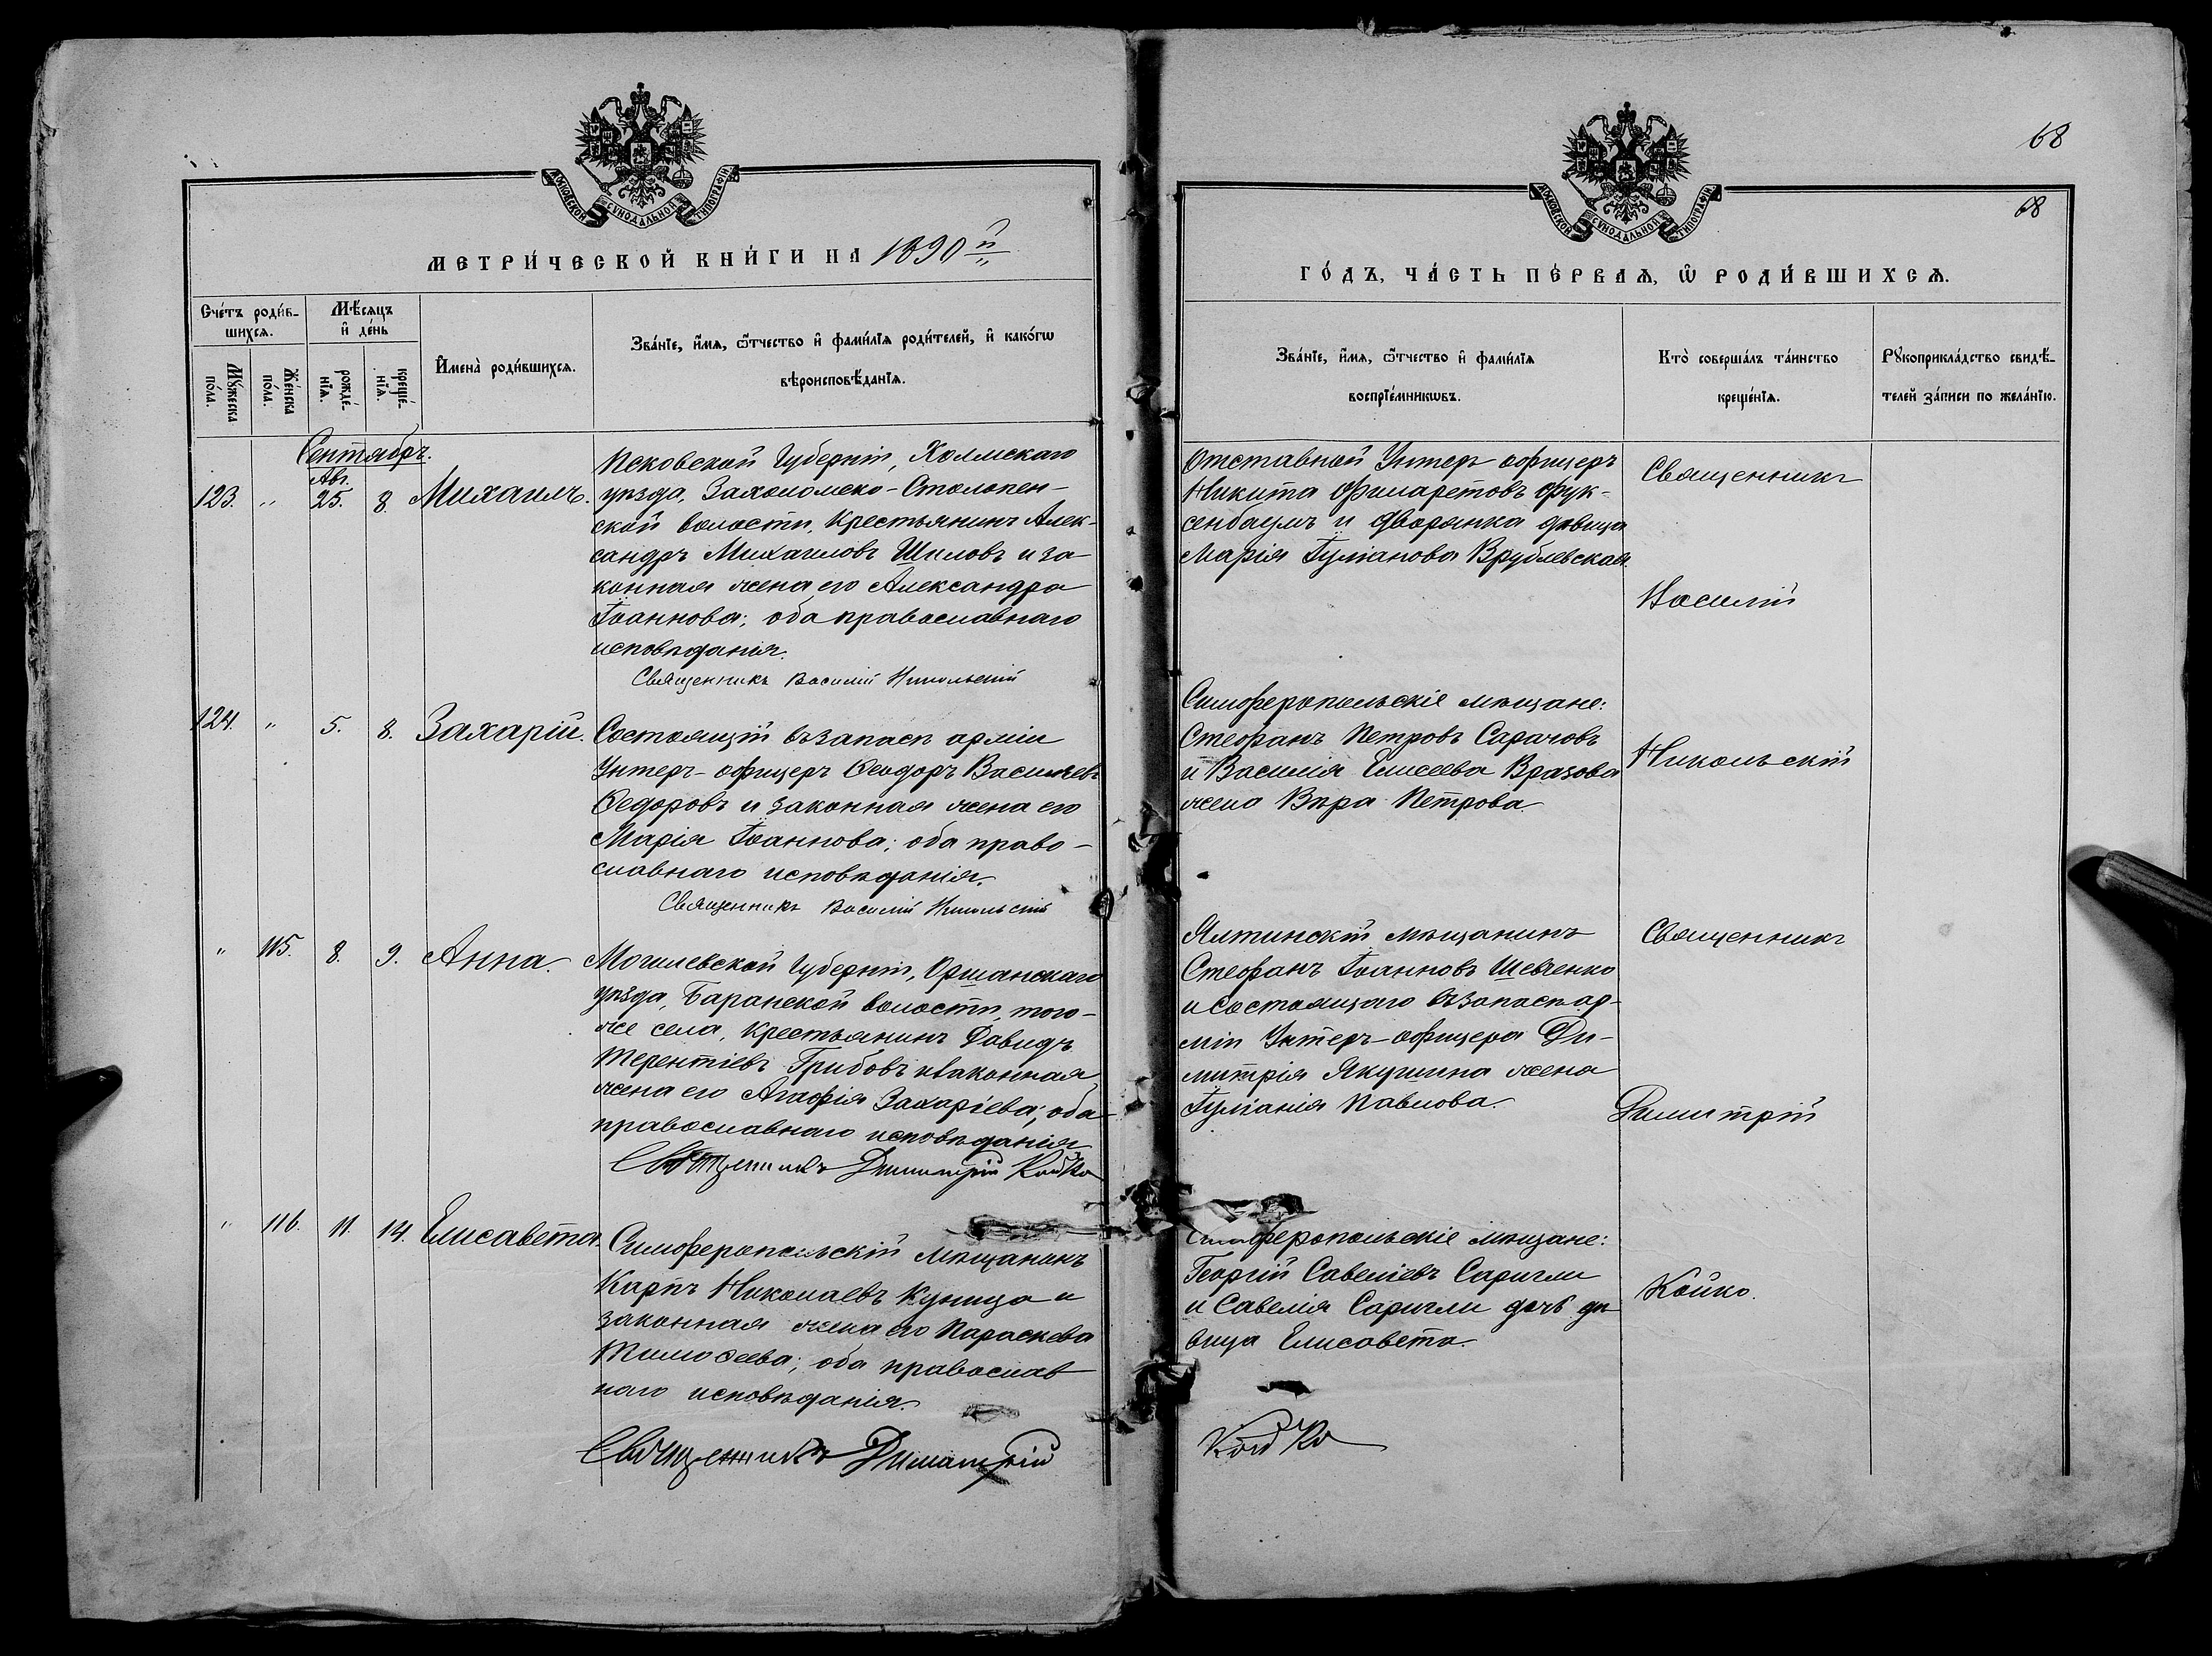 68
68
МОСКОВСКОЙ СѴНОДАЛЬНОЙ ТИПОГРАФІИ
МЕТРИ́ЧЕСКОЙ КНИ́ГИ НА 1890й
Сче́тъ роди́в-
шихся.
Мѣ́сяцъ
и҆ де́нь
Мꙋ́жеска
по́ла.
Же́нска
по́ла.
рожде́-
нїѧ.
креще́-
нїѧ.
И҆мена̀ роди́вшихсѧ.
Зва́нїе, и҆́мѧ, ѻ҆́тчество и҆ фами́лїѧ роди́телей, и҆ како́гѡ
вѣроисповѣ́данїѧ.
Сентябрь.
Авг.
123. " 25. 8. Михаилъ.
Псковской Губерніи, Холмскаго
уѣзда, Захоломско-Столопен-
ской волости, крестьянинъ Алек-
сандръ Михаиловъ Шиловъ и за
конная жена его Александра
Іоаннова; оба православнаго
исповѣданія.
Священникъ Василій Никольскій
124. " 5. 8. Захарій.
Состоящій въ запасѣ арміи
Унтеръ-офицеръ Ѳеодоръ Васильевъ
Ѳедоровъ и законная жена его
Марія Іоаннова; оба право-
славнаго исповѣданія.
Священникъ Василій Никольскій
" 115. 8. 9. Анна.
Могилевской Губерніи, Оршанскаго
уѣзда, Баранской волости, того-
же села, крестьянинъ Давидъ
Терентіевъ Грибовъ и законная
жена его Агафія Захаріева; оба
православнаго исповѣданія
Священникъ Димитрій Койко
" 116. 11 14. Елисавета.
Симферопольскій мѣщанинъ
Карпъ Николаевъ Куница и
законная жена его Параскева
Тимоѳеева; оба православ
наго исповѣданія.
Священникъ Димитрій
МОСКОВСКОЙ СѴНОДАЛЬНОЙ ТИПОГРАФІИ
ГО́ДЪ, ЧА́СТЬ ПЕ́РВАѦ, Ѽ РОДИ́ВШИХСѦ.
Зва́нїе, и҆́мѧ, ѻ҆́тчество и҆ фами́лїѧ
воспрїе́мникѡвъ.
Кто̀ соверша́лъ та́инство
креще́нїѧ.
Рꙋкоприкла́дство свидѣ́-
телей за́писи по жела́нїю.
Отставной Унтеръ офицеръ
Никита Филаретовъ Фук-
сенбаумъ и дворянка дѣвица
Марія Іуліанова Врублевская
Священникъ
Василій
Симферопольскіе мѣщане:
Стефанъ Петровъ Сарачовъ
и Василія Елисеева Вразова
жена Вѣра Петрова
Никольскій
Ялтинскій мѣщанинъ
Стефанъ Іоанновъ Шевченко
и состоящаго въ запасѣ ар-
міи Унтеръ-офицера Ди-
митрія Якушина жена
Іуліанія Павлова.
Священникъ
Димитрій
Симферопольскіе мѣщане:
Георгій Савеліевъ Саригли
и Савелія Саригли дочь дѣ
вица Елисавета.
Койко.
Койко